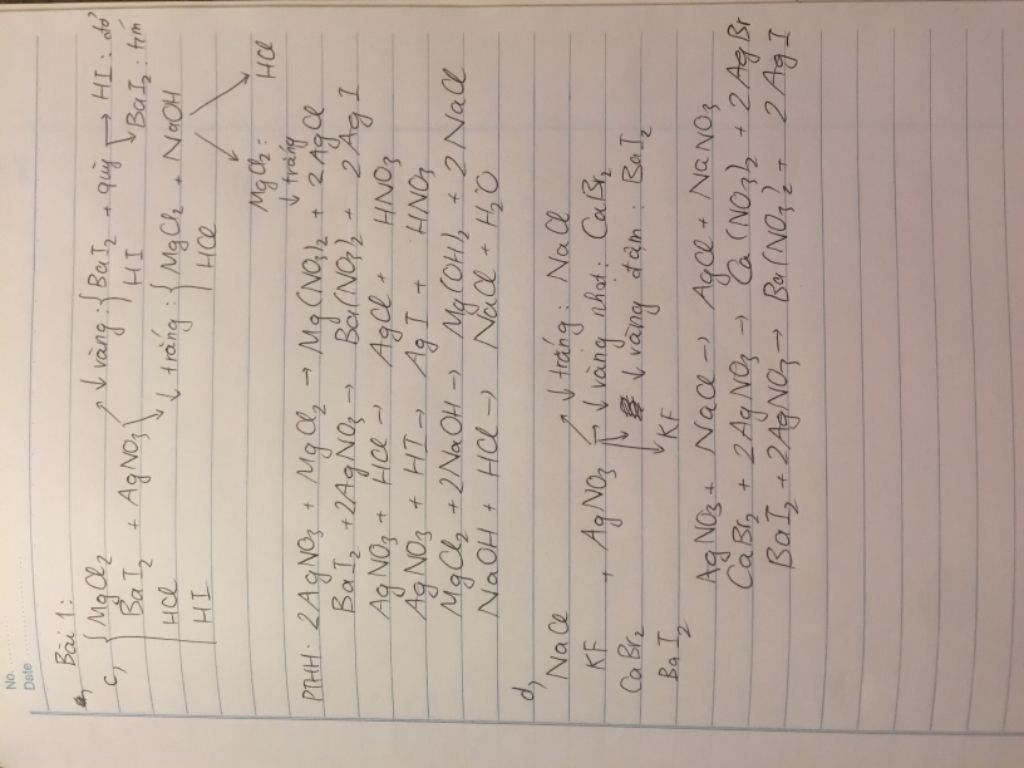 No.
Date
Bài 1:
c, { MgCl₂
BaI₂ + AgNO₃
HCl
HI
↓ vàng: { BaI₂ + quỳ → HI: đỏ
HI BaI₂: tím
↓ trắng: { MgCl₂ + NaOH
HCl
MgCl₂: ↓ trắng
HCl
PTHH: 2AgNO₃ + MgCl₂ → Mg(NO₃)₂ + 2AgCl
BaI₂ + 2AgNO₃ → Ba(NO₃)₂ + 2AgI
AgNO₃ + HCl → AgCl + HNO₃
AgNO₃ + HI → AgI + HNO₃
MgCl₂ + 2NaOH → Mg(OH)₂ + 2NaCl
NaOH + HCl → NaCl + H₂O
d,
NaCl
KF + AgNO₃
CaBr₂
BaI₂
↓ trắng: NaCl
↓ vàng nhạt: CaBr₂
↓ vàng đậm: BaI₂
KF
AgNO₃ + NaCl → AgCl + NaNO₃
CaBr₂ + 2AgNO₃ → Ca(NO₃)₂ + 2AgBr
BaI₂ + 2AgNO₃ → Ba(NO₃)₂ + 2AgI